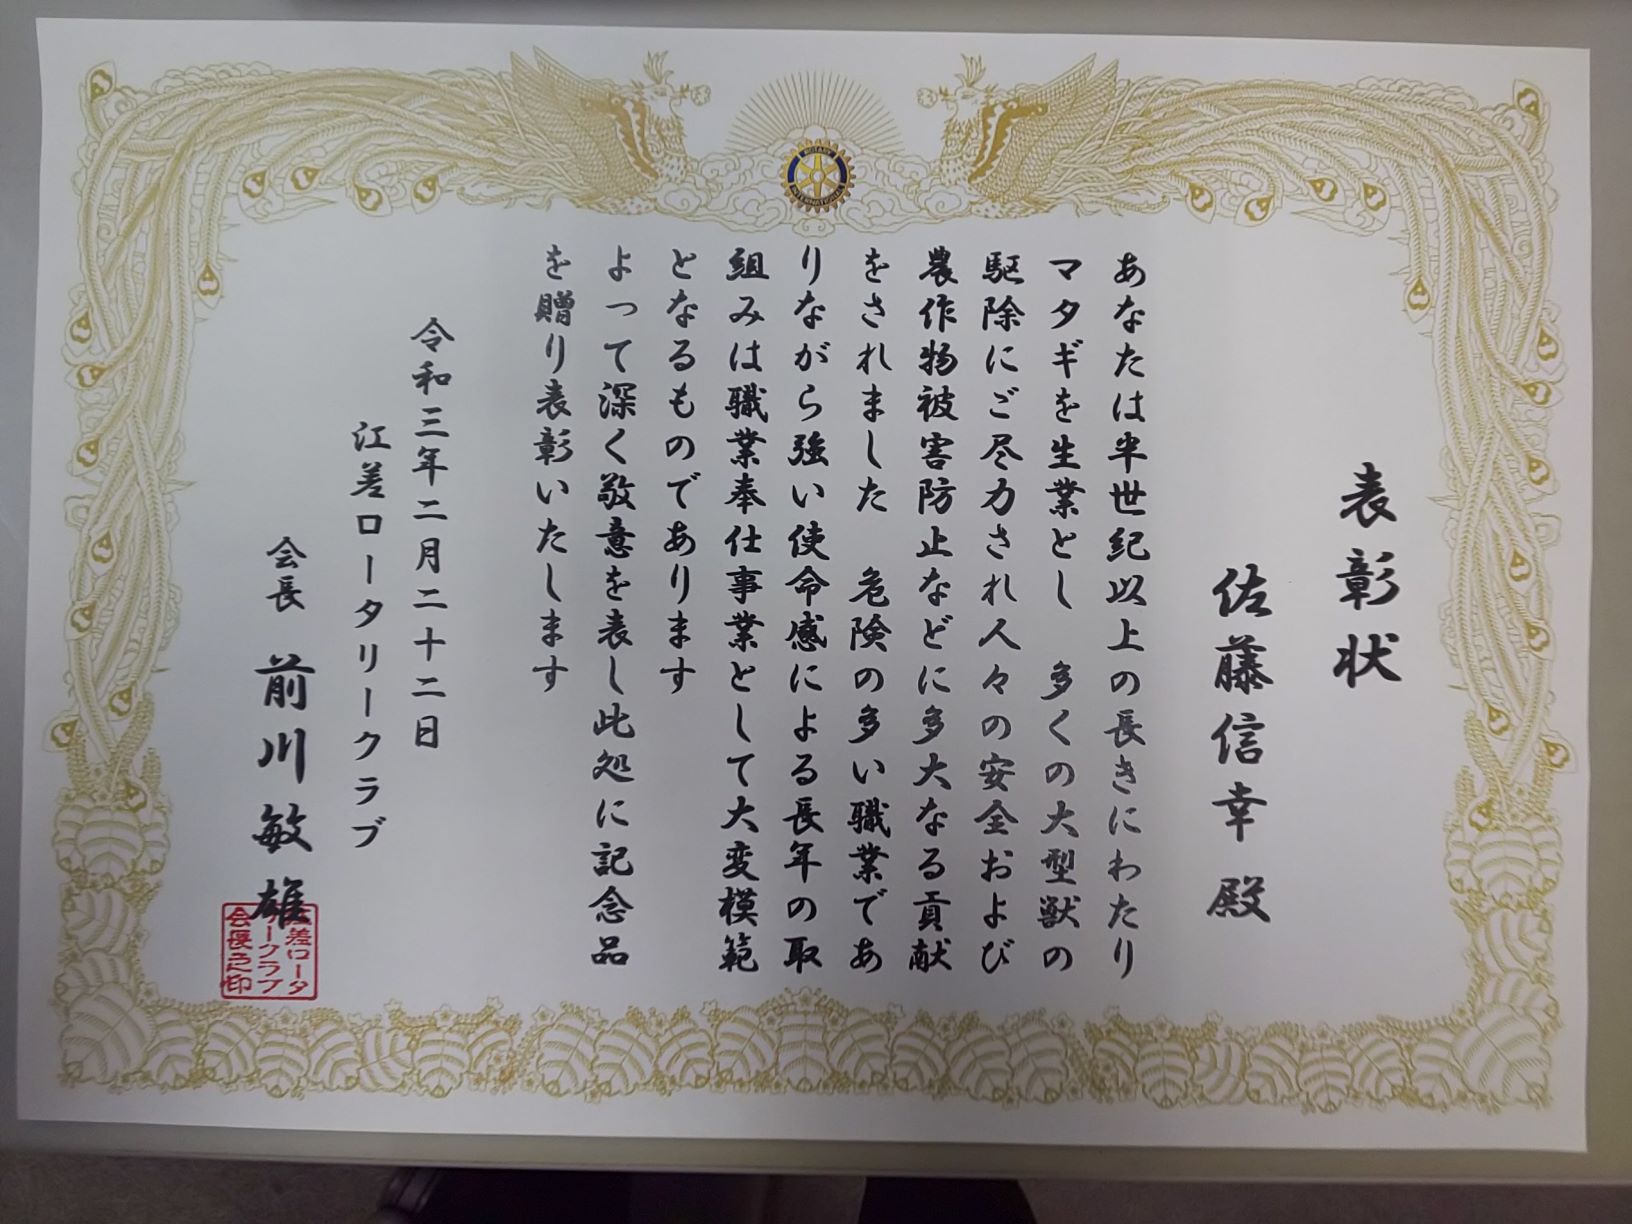 表彰状
佐藤信幸 殿
あなたは半世紀以上の長きにわたり
マタギを生業とし 多くの大型獣の
駆除にご尽力され人々の安全および
農作物被害防止などに多大なる貢献
をされました 危険の多い職業であ
りながら強い使命感による長年の取
組みは職業奉仕事業として大変模範
となるものであります
よって深く敬意を表し此処に記念品
を贈り表彰いたします
令和三年二月二十二日
江差ロータリークラブ
会長 前川敏雄
江差ロータ
リークラブ
会長之印
ROTARY
INTERNATIONAL